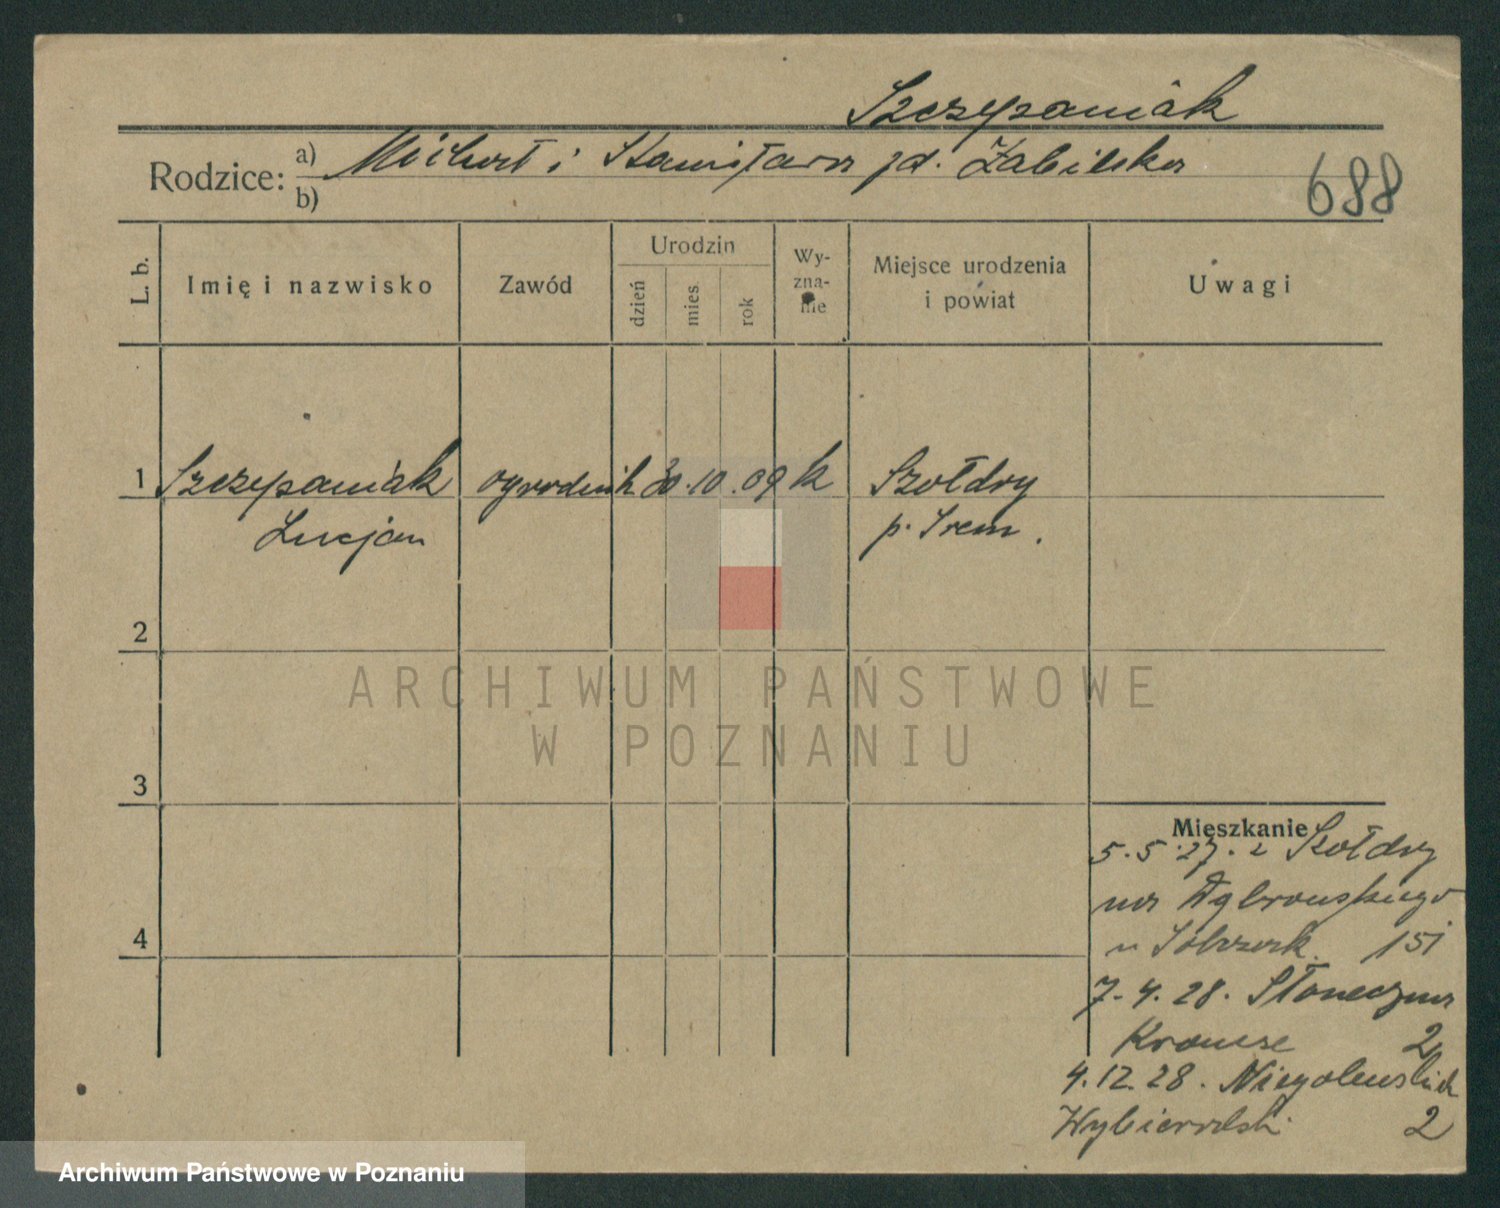 Szczepaniak
Rodzice: a) Michał i Stanisława zd. Żabińska
b)
688
L. b.
Imię i nazwisko
Zawód
Urodzin
dzień
mies.
rok
Wy-
zna-
nie
Miejsce urodzenia
i powiat
Uwagi
1 Szczepaniak ogrodnik 30.10.09 k Szołdry
Lucjan p. Śrem.
2
3
4
Mieszkanie
5.5.27. z Szołdry
na Dąbrowskiego
u 15
7.4.28. Słoneczna
Krause 2
4.12.28. Niegolewskich
Wybieralski 2
ARCHIWUM PAŃSTWOWE
W POZNANIU
Archiwum Państwowe w Poznaniu